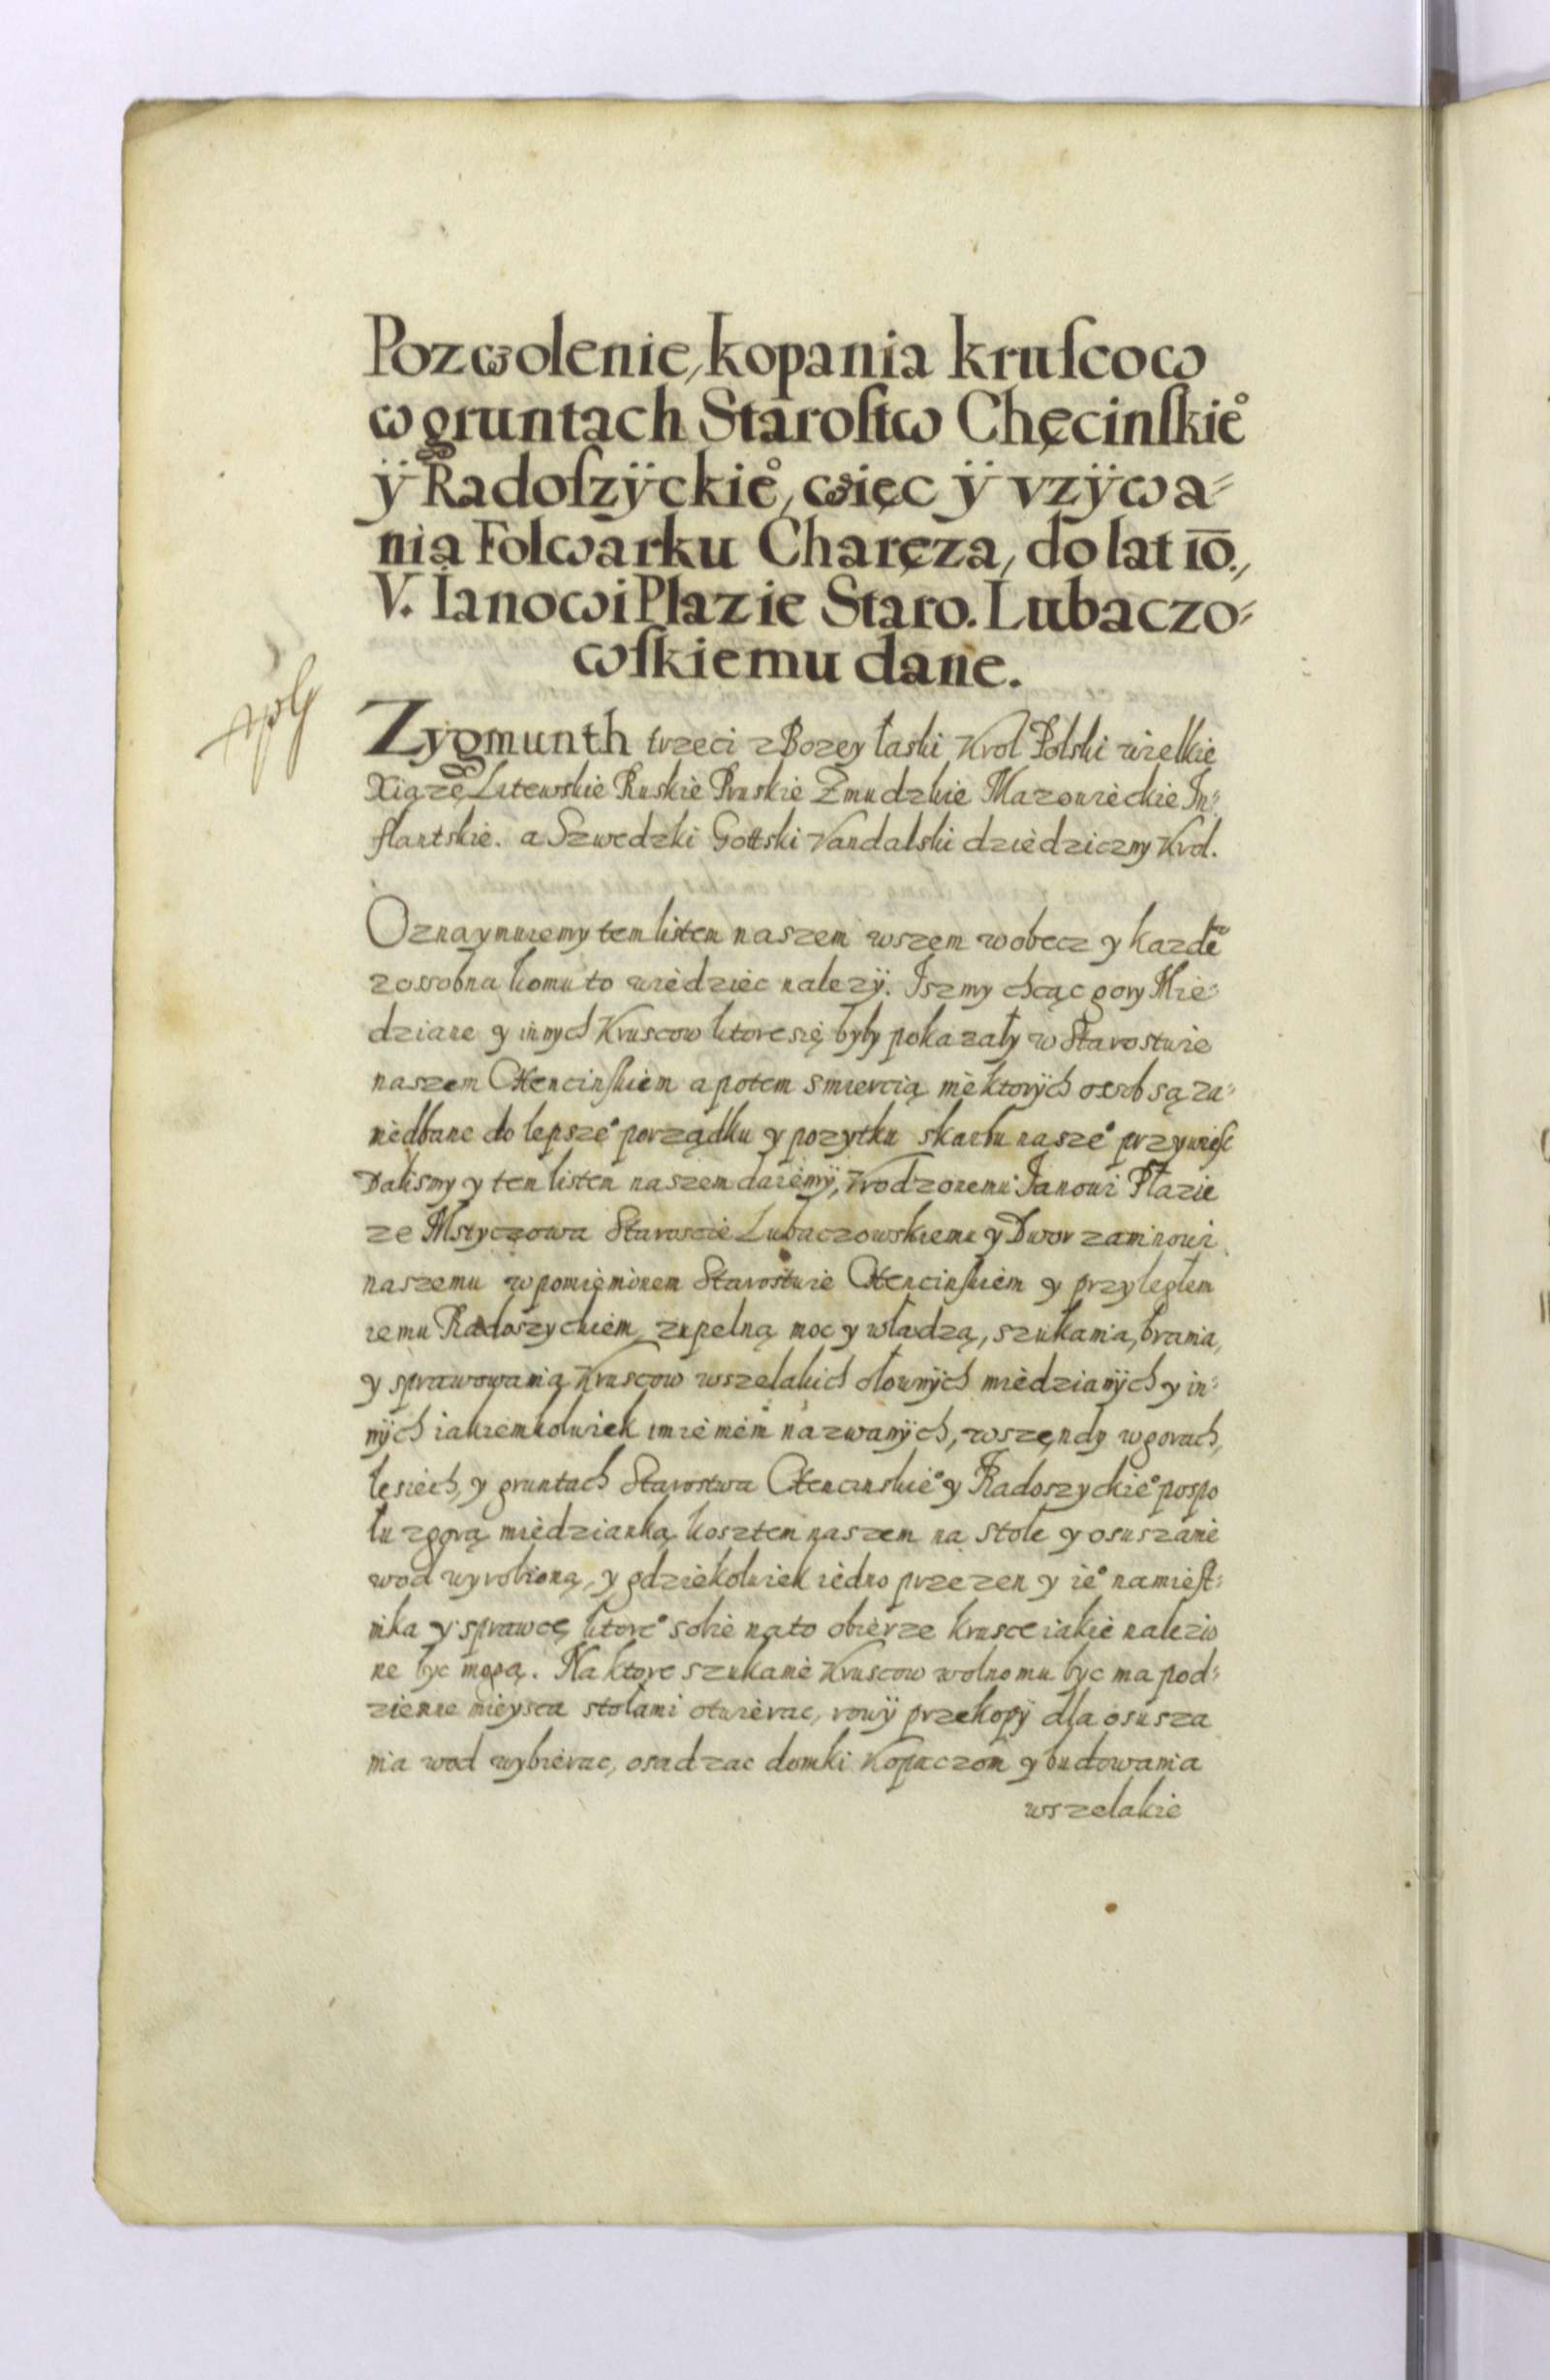 Pozwolenie, kopania kruſcow
w gruntach Staroſtw Chęcinſkie°
ÿ Radoſzÿckie°, więc ÿ vzÿwa=
nia Folwarku Charęza, do lat 10.,
V. Ianowi Plazie Staro. Lubaczo=
wſkiemu dane.
Zygmunth trzeci z Bozey łaski Krol Polski wielkie
Xiązę Litewskie Ruskie Pruskie Zmudzkie Mazowieckie In=
flantskie. a Szwedzki Gottski Vandalski dziedziczny Krol.
Oznaymuiemy tem listem naszem wszem wobecz y kazdē
zossobna komu to wiedziec nalezÿ. Iszmy chcąc gory Mie=
dziane y innych Kruscow ktore się były pokazały w Starostwie
naszem Chencinſkiem a potem smiercią niektorÿch osob są za=
niedbane do lepsze° porządku y pozytku skarbu nasze° przywieſc
Dalismy y tem listem naszem daiemÿ, Vrodzonemu Ianowi Płazie
ze Mstyczowa Staroscie Lubaczowskiemu y Dworzaninowi
naszemu w pomienionem Starostwie Chencinſkiem y przyległem
iemu Radoszyckiem, zupelną moc y władzą, szukania, brania,
y sprawowania Kruscow wszelakich ołownÿch miedzianÿch y in=
nÿch iakiemkolwiek imieniem nazwanÿch, wszęndy w gorach,
lesiech, y gruntach Starostwa Chencinskie° y Radoszyckie° pospo
łu z gorą miedzianką kosztem naszem na stole y osuszanie
wod wyrobioną, y gdziekolwiek iedno przezen y ie° namieſt=
nika y sprawcę ktore° sobie nato obierze krusce iakie nalezio
ne byc mogą. Na ktore szukanie Kruscow wolno mu byc ma pod=
ziemne mieysca stolami otwierac, rowÿ przekopÿ dla osusza
nia wod wybierac, osadzac domki Kopaczom y budowania
wszelakie